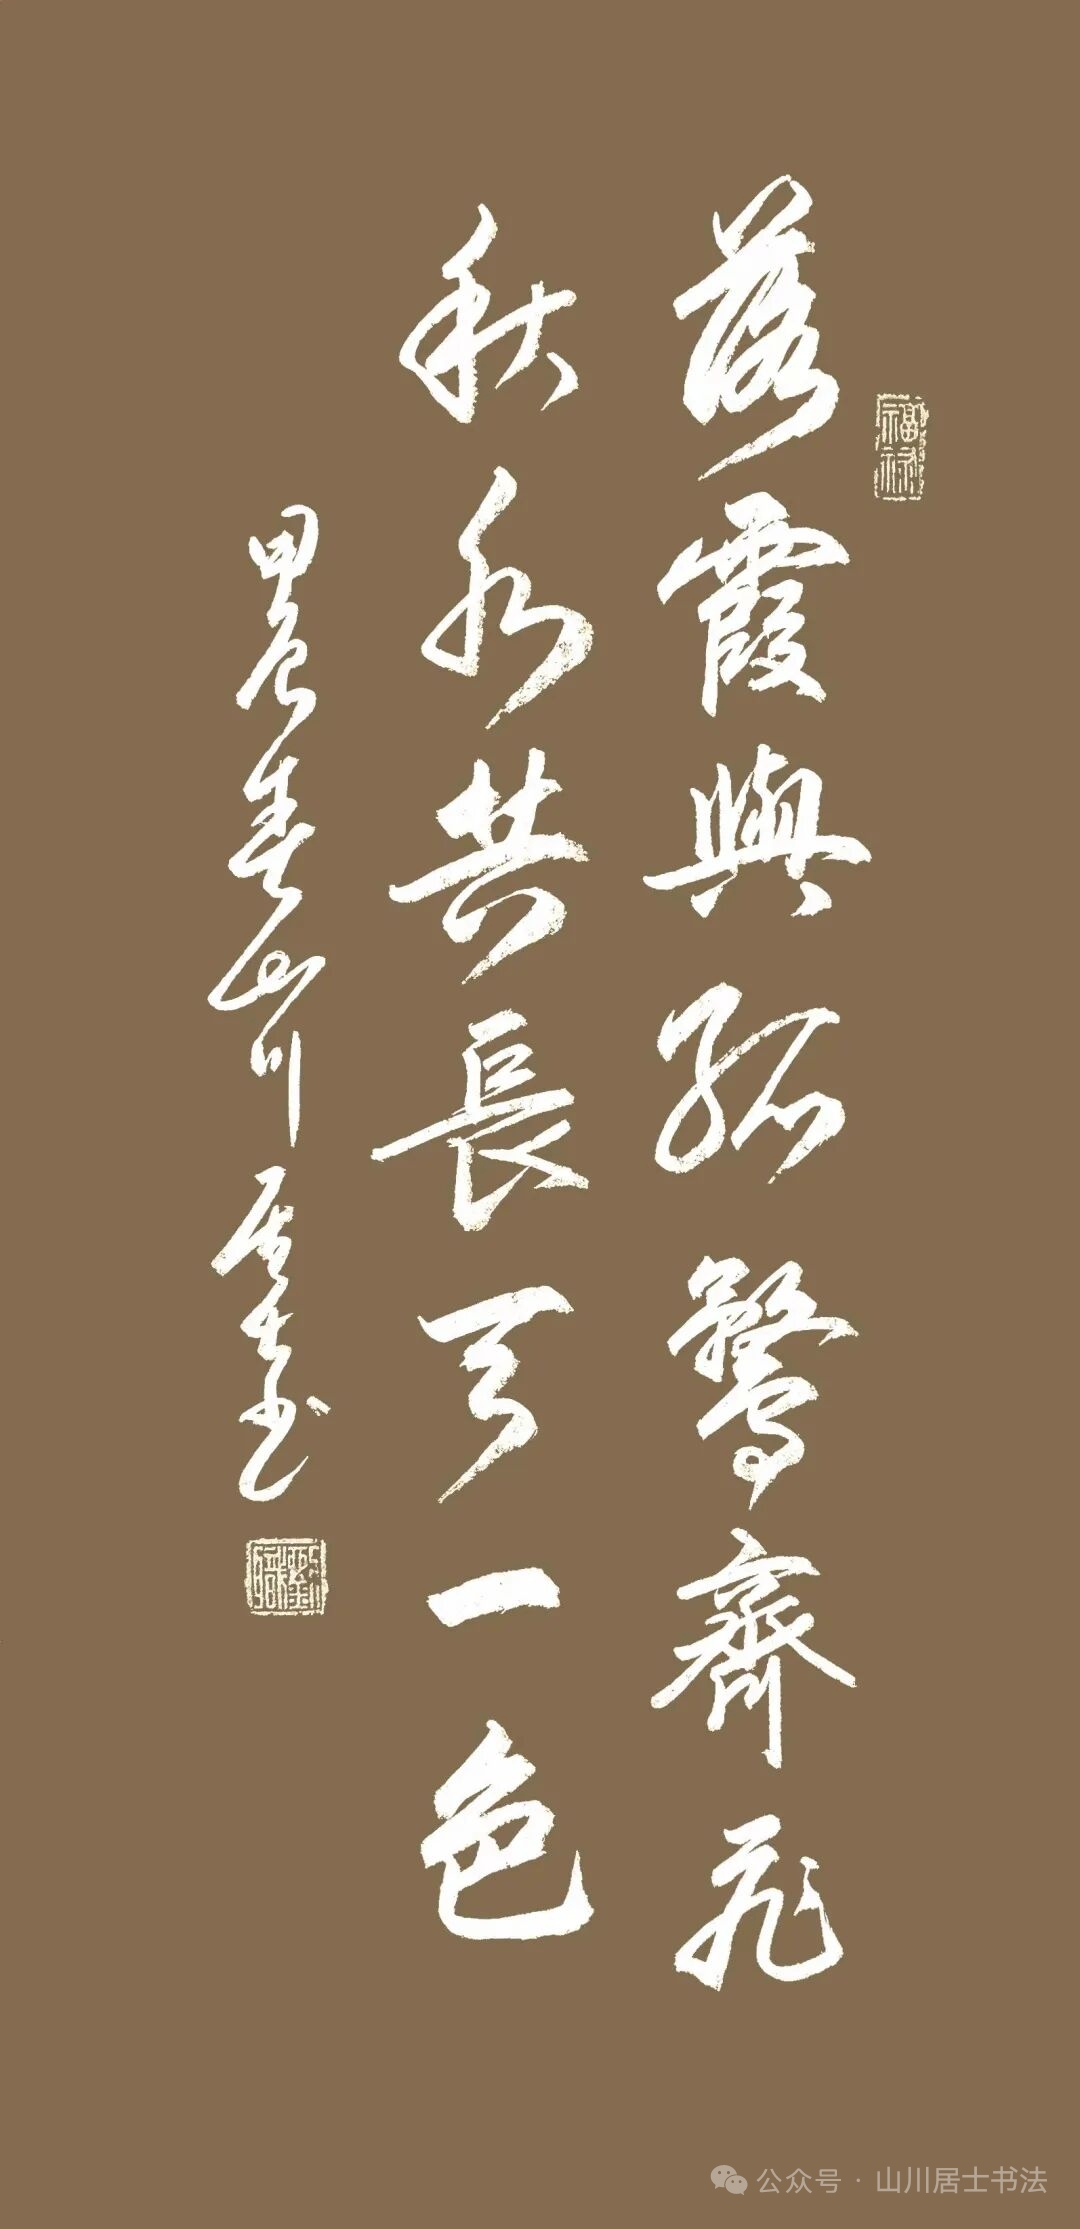 落霞與孤鶩齊飛
秋水共長天一色
甲辰春山川居士书
福禄
公众号·山川居士书法